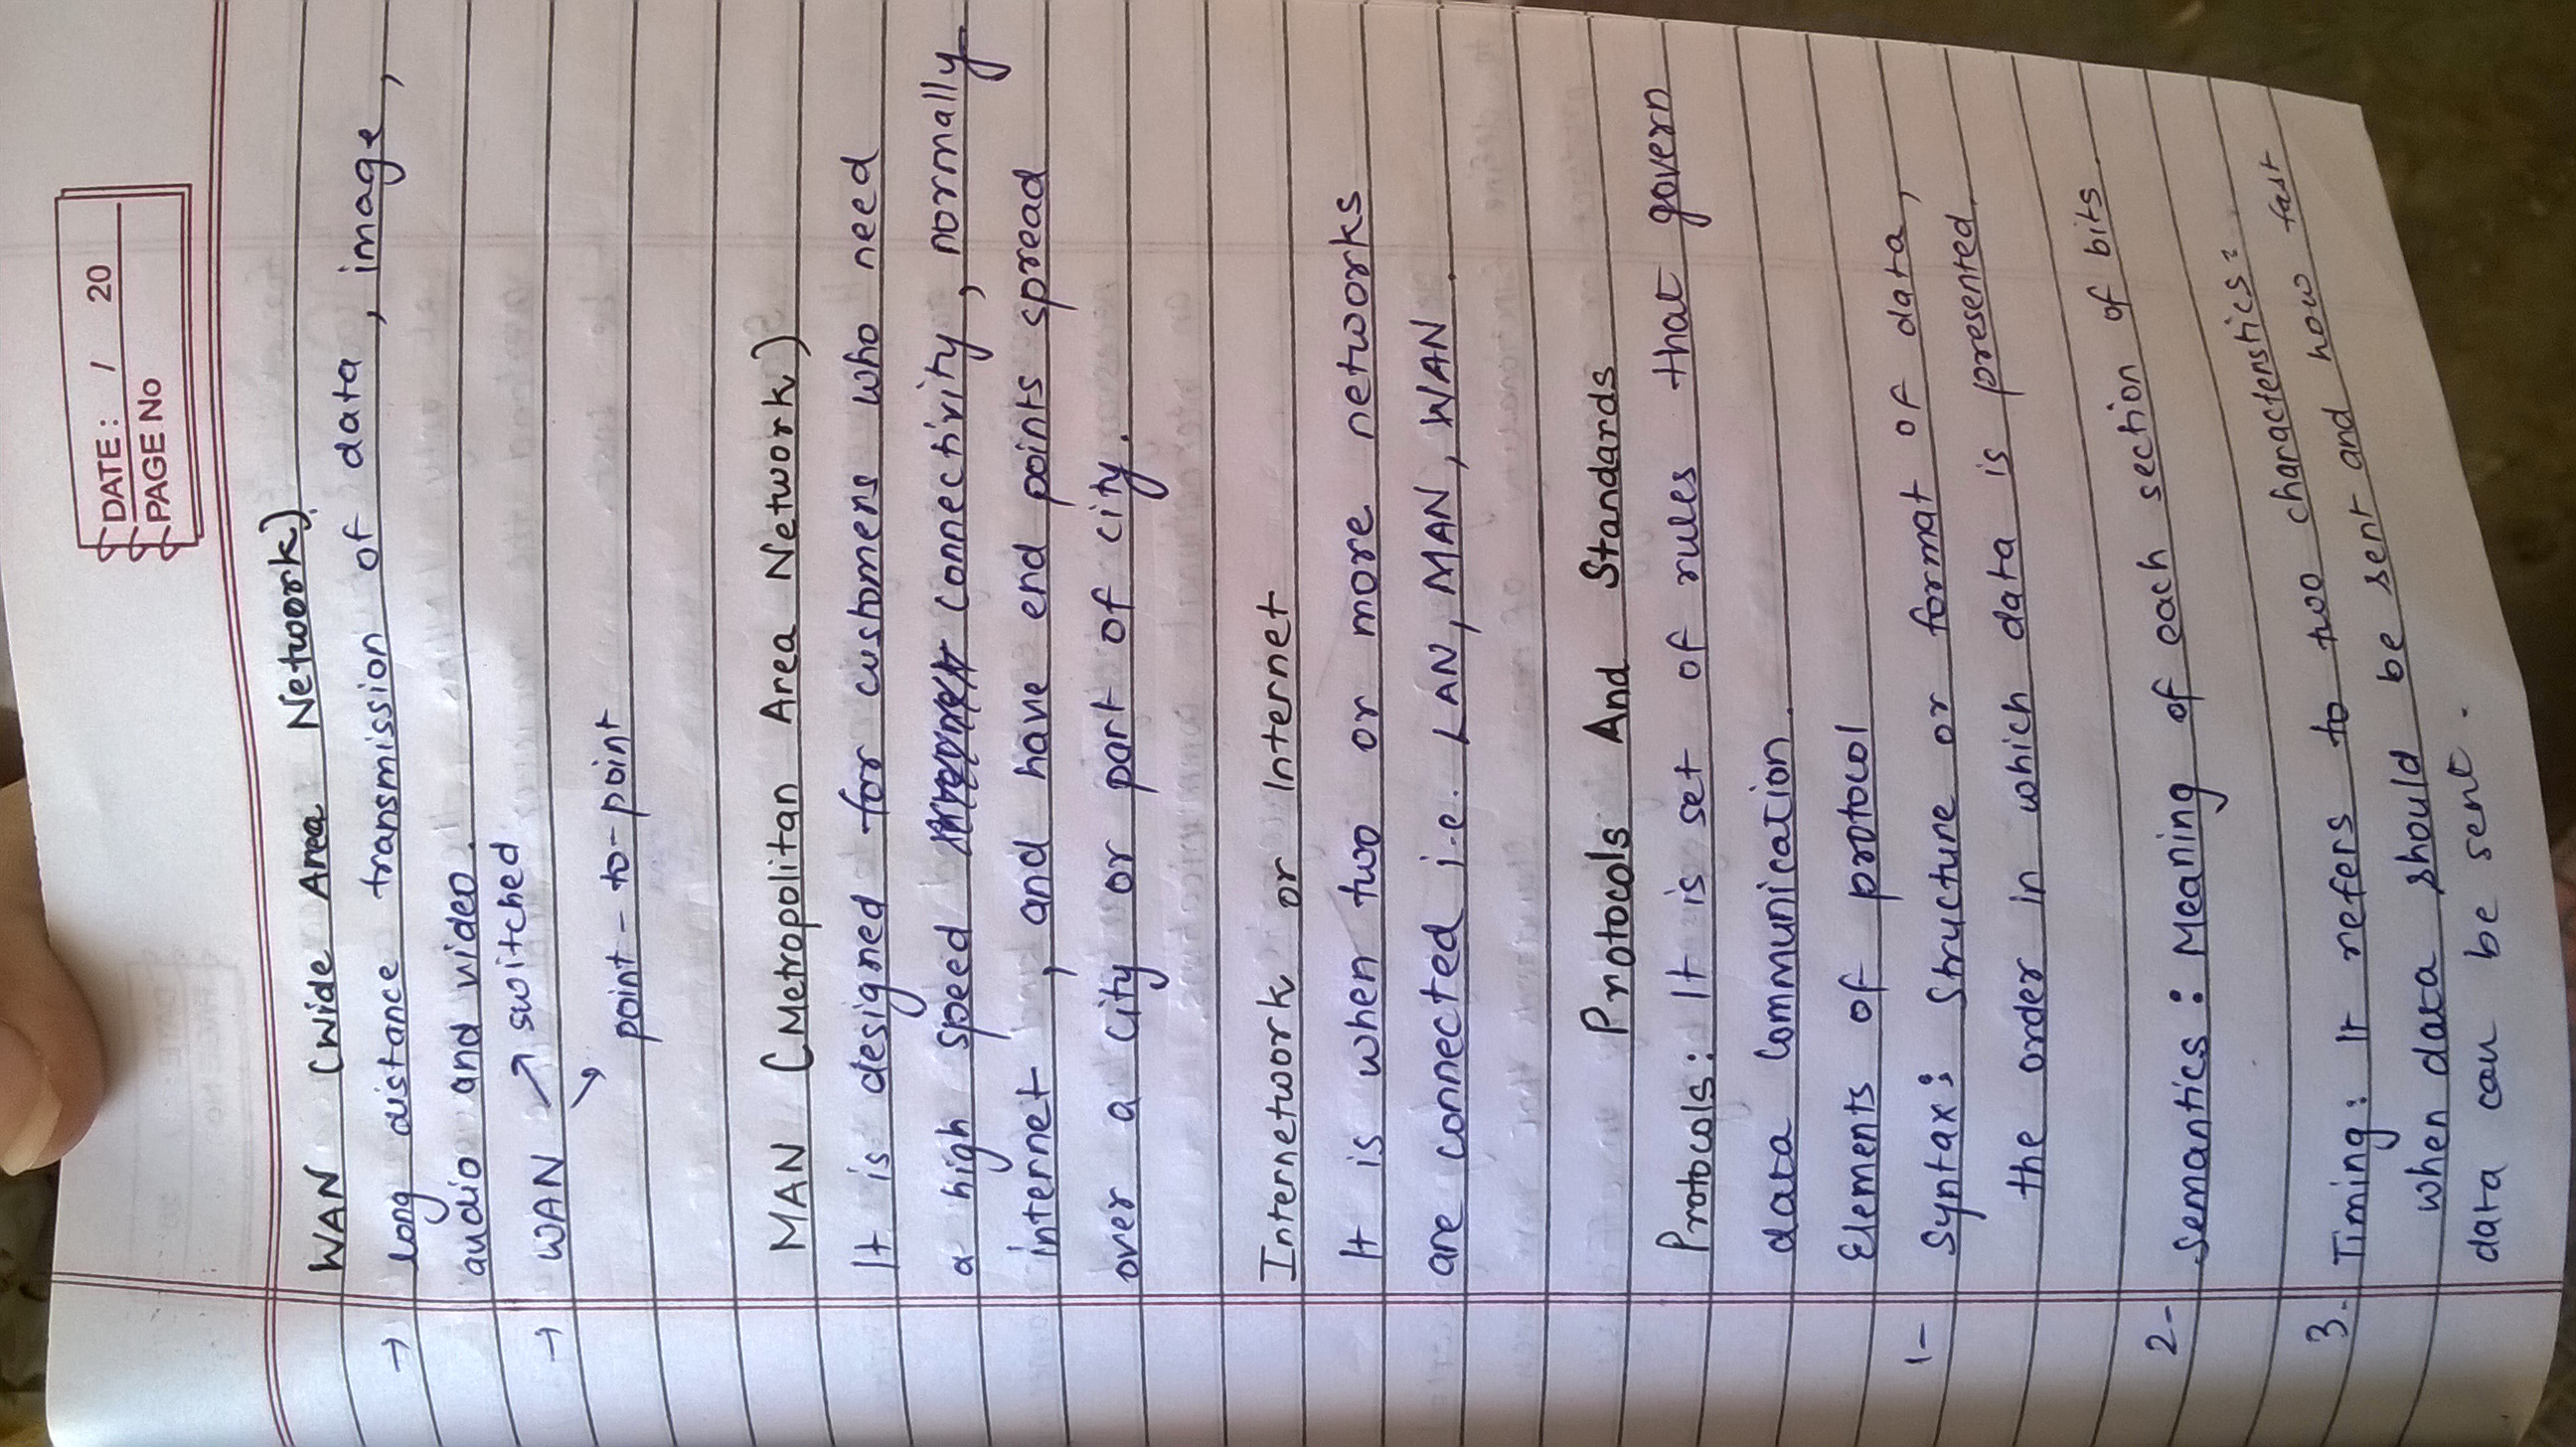 DATE : / 20
PAGE No
WAN (Wide Area Network)
→ long distance transmission of data, image,
audio and video.
→ WAN ↗ switched
↘ point-to-point
MAN (Metropolitan Area Network)
It is designed for customers who need
a high speed connectivity, normally
internet, and have end points spread
over a city or part of city.
Internetwork or Internet
It is when two or more networks
are connected i.e. LAN, MAN, WAN.
Protocols And Standards
Protocols: It is set of rules that govern
data communication.
Elements of protocol
1- Syntax: Structure or format of data,
the order in which data is presented.
2- Semantics: Meaning of each section of bits
3. Timing: It refers to two characterstics:
when data should be sent and how fast
data can be sent.